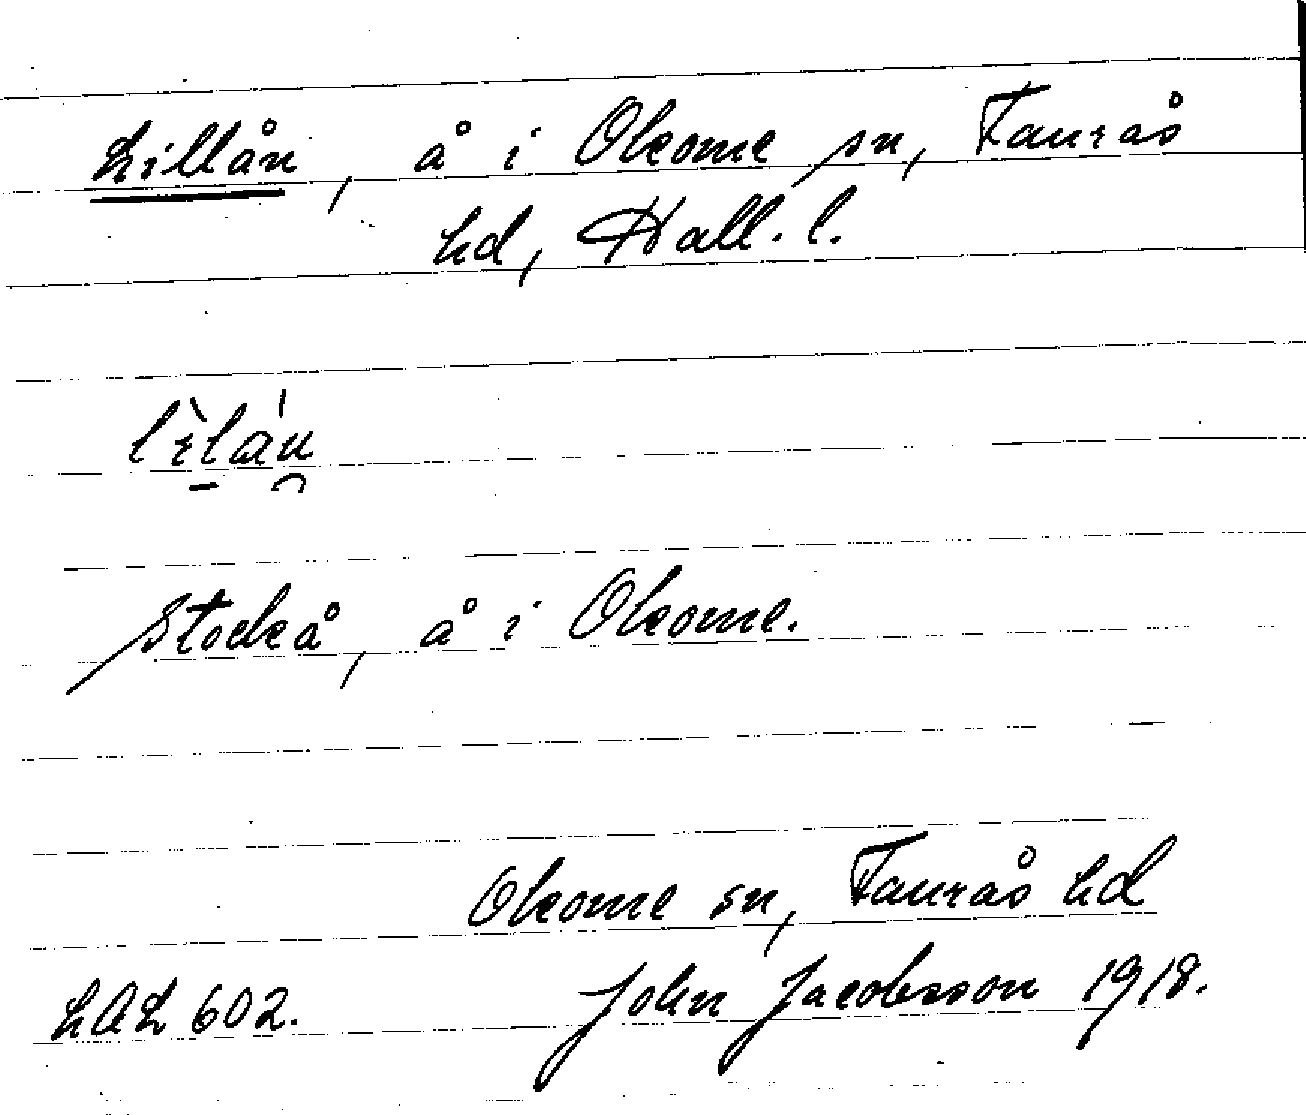 Lillån, å i Okome sn, Faurås
hd, Hall. l.
lìlán
Stockå, å i Okome.
Okome sn, Faurås hd
LAL 602. John Jacobsson 1918.